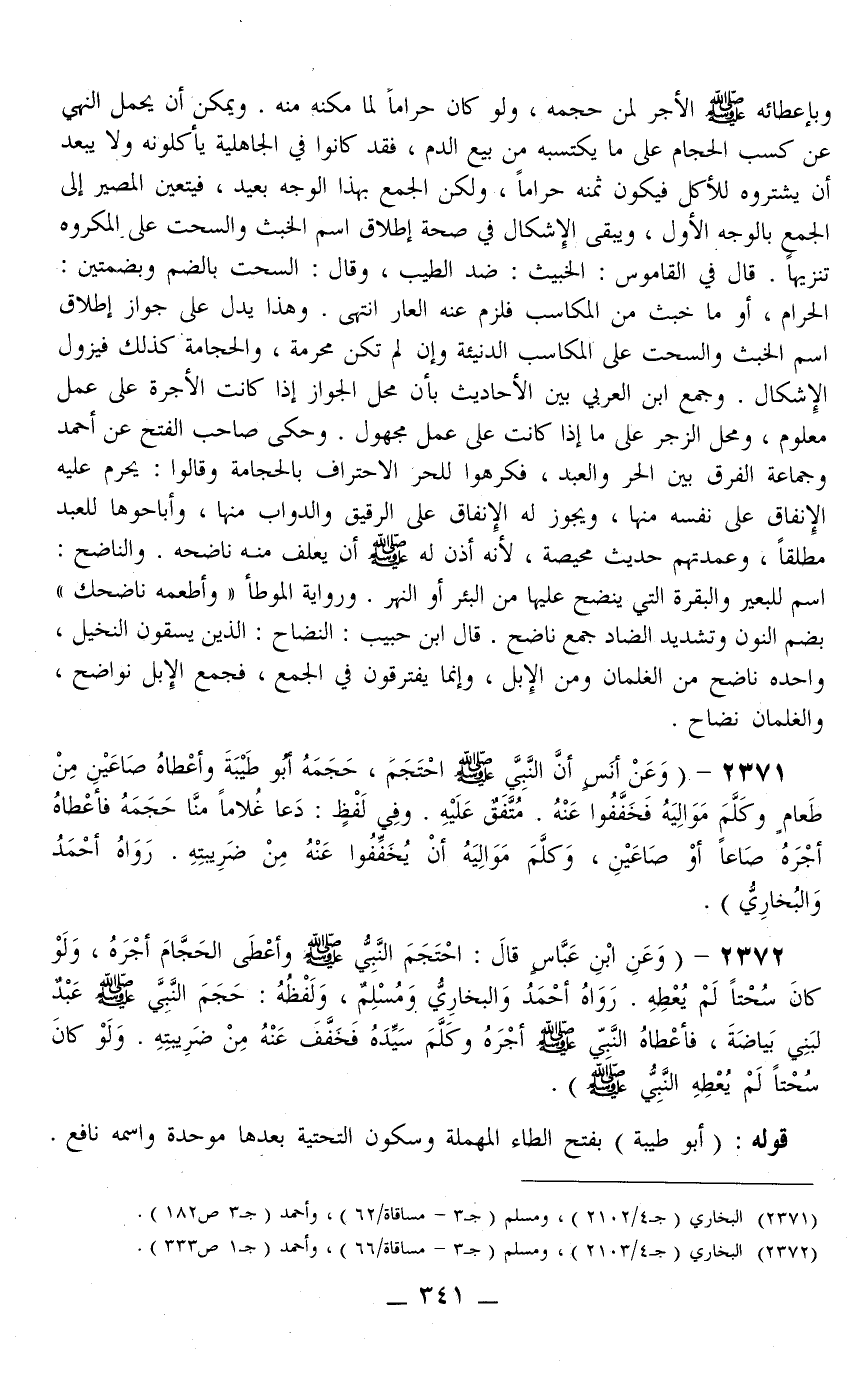 وبإعطائه ﷺ الأجر لمن حجمه ، ولو كان حراماً لما مكنه منه . ويمكن أن يحمل النهي
عن كسب الحجام على ما يكتسبه من بيع الدم ، فقد كانوا في الجاهلية يأكلونه ولا يبعد
أن يشتروه للأكل فيكون ثمنه حراماً ، ولكن الجمع بهذا الوجه بعيد ، فيتعين المصير إلى
الجمع بالوجه الأول ، ويبقى الإشكال في صحة إطلاق اسم الخبث والسحت على المكروه
تنزيهاً . قال في القاموس : الخبيث : ضد الطيب ، وقال : السحت بالضم وبضمتين :
الحرام ، أو ما خبث من المكاسب فلزم عنه العار انتهى . وهذا يدل على جواز إطلاق
اسم الخبث والسحت على المكاسب الدنيئة وإن لم تكن محرمة ، والحجامة كذلك فيزول
الإشكال . وجمع ابن العربي بين الأحاديث بأن محل الجواز إذا كانت الأجرة على عمل
معلوم ، ومحل الزجر على ما إذا كانت على عمل مجهول . وحكى صاحب الفتح عن أحمد
وجماعة الفرق بين الحر والعبد ، فكرهوا للحر الاحتراف بالحجامة وقالوا : يحرم عليه
الإنفاق على نفسه منها ، ويجوز له الإنفاق على الرقيق والدواب منها ، وأباحوها للعبد
مطلقاً ، وعمدتهم حديث محيصة ، لأنه أذن له ﷺ أن يعلف منه ناضحه . والناضح :
اسم للبعير والبقرة التي ينضح عليها من البئر أو النهر . ورواية الموطأ « وأطعمه ناضحك »
بضم النون وتشديد الضاد جمع ناضح . قال ابن حبيب : النضاح : الذين يسقون النخيل ،
واحده ناضح من الغلمان ومن الإبل ، وإنما يفترقون في الجمع ، فجمع الإبل نواضح ،
والغلمان نضاح .
٢٣٧١ - ( وَعَنْ أنَسٍ أنَّ النَّبِيَّ ﷺ احْتَجَمَ ، حَجَمَهُ أبُو طَيْبَةَ وأعْطاهُ صَاعَيْنِ مِنْ
طَعامٍ وكَلَّمَ مَوَالِيَهُ فَخَفَّفُوا عَنْهُ . مُتَّفَقٌ عَلَيْهِ . وفِي لَفْظٍ : دَعا غُلاماً منَّا حَجَمَهُ فأعْطاهُ
أجْرَهُ صَاعاً أوْ صَاعَيْنِ ، وَكلَّمَ مَوَالِيَهُ أنْ يُخَفِّفُوا عَنْهُ مِنْ ضَرِيبتِهِ . رَوَاهُ أحْمَدُ
وَالبُخارِيُّ ) .
٢٣٧٢ - ( وَعَنِ ابْنِ عَبَّاسٍ قالَ : احْتَجَمَ النَّبِيُّ ﷺ وأعْطَى الحَجَّامَ أجْرَهُ ، وَلَوْ
كانَ سُحْتاً لَمْ يُعْطِهِ . رَوَاهُ أحْمَدُ وَالبخارِيُّ وَمُسْلِمٌ ، وَلَفْظُهُ : حَجَمَ النَّبِيَّ ﷺ عَبْدٌ
لبَنِي بَياضَةَ ، فأعْطاهُ النَّبِيّ ﷺ أجْرَهُ وكَلَّمَ سَيِّدَهُ فَخَفَّفَ عَنْهُ مِنْ ضَرِيبتِهِ . وَلَوْ كانَ
سُحْتاً لَمْ يُعْطِهِ النَّبِيُّ ﷺ ) .
قوله : ( أبو طيبة ) بفتح الطاء المهملة وسكون التحتية بعدها موحدة واسمه نافع .
(٢٣٧١) البخاري ( جـ٤/٢١٠٢ ) ، ومسلم ( جـ٣ - مساقاة/٦٢ ) ، وأحمد ( جـ٣ ص١٨٢ ) .
(٢٣٧٢) البخاري ( جـ٤/٢١٠٣ ) ، ومسلم ( جـ٣ - مساقاة/٦٦ ) ، وأحمد ( جـ١ ص٣٣٣ ) .
_ ٣٤١ _